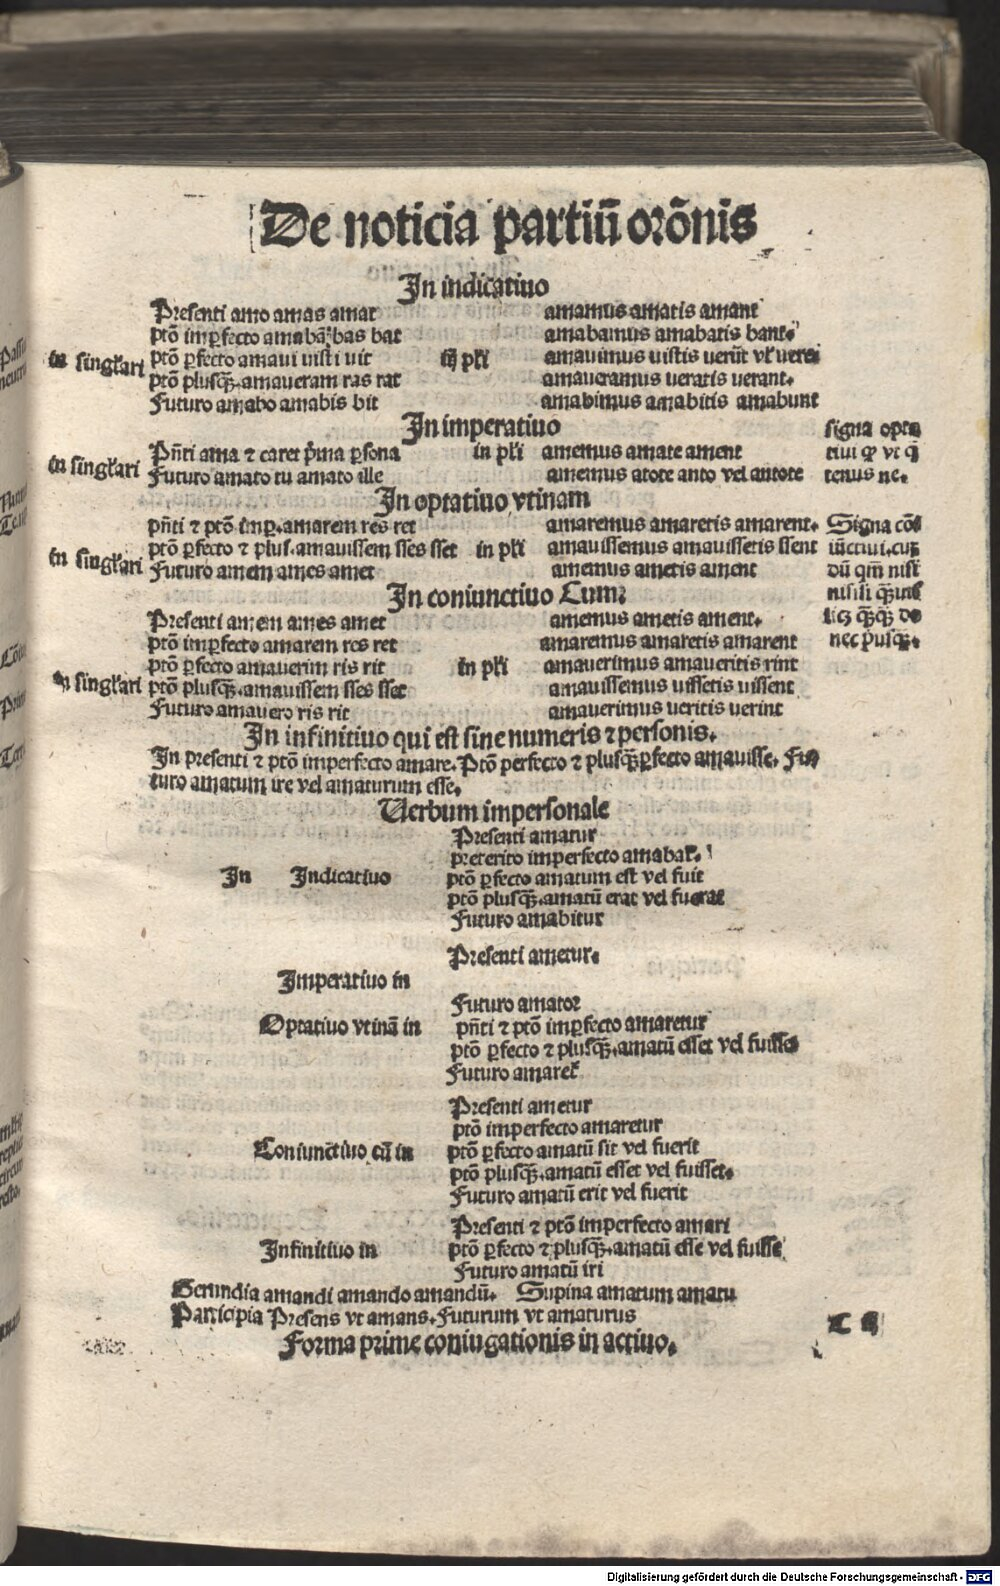 De noticia partiū orōnis
In indicatiuo
Presenti amo amas amat amamus amatis amant
ptō imꝑfecto amabā bas bat amabamus amabatis bant.
in singl'ari ptō ꝑfecto amaui uisti uit in pl'i amauimus uistis uerūt vl' uere
ptō plusqꝫ. amaueram ras rat amaueramus ueratis uerant.
Futuro amabo amabis bit amabimus amabitis amabunt
In imperatiuo
signa opta
in singl'ari Pn̄ti ama ⁊ caret p̄ma ꝑsona in pl'i amemus amate ament tiui vt
Futuro amato tu amato ille amemus atote anto vel antote tenus ne.
In optatiuo vtinam
pn̄ti ⁊ ptō imꝑ. amarem res ret amaremus amaretis amarent. Signa cō
in singl'ari ptō ꝑfecto ⁊ plus. amauissem sses sset in pl'i amauissemus amauissetis ssent iūctiui. cum
Futuro amem ames amet amemus ametis ament dū qm̄ nisi
In coniunctiuo Cum
nihili
Presenti amem ames amet amemus ametis ament. do
ptō imꝑfecto amarem res ret amaremus amaretis amarent nec
ptō ꝑfecto amauerim ris rit in pl'i amauerimus amaueritis rint
in singl'ari ptō plusqꝫ. amauissem sses sset amauissemus uissetis uissent
Futuro amauero ris rit amauerimus ueritis uerint
In infinitiuo qui est sine numeris ⁊ personis.
In presenti ⁊ ptō imperfecto amare. Ptō perfecto ⁊ plusqꝫperfecto amauisse. Fu
turo amatum ire vel amaturum esse.
Uerbum impersonale
Presenti amatur
preterito imperfecto amabat'.
In Indicatiuo ptō ꝑfecto amatum est vel fuit
ptō plusqꝫ. amatū erat vel fuerat
Futuro amabitur
Presenti ametur.
Imperatiuo in
Futuro amator
Optatiuo vtinā in pn̄ti ⁊ ptō imꝑfecto amaretur
ptō ꝑfecto ⁊ plusqꝫ. amatū esset vel fuisset
Futuro amaret'
Presenti ametur
ptō imperfecto amaretur
Coniunctiuo cū in ptō ꝑfecto amatū sit vel fuerit
ptō plusqꝫ. amatū esset vel fuisset.
Futuro amatū erit vel fuerit
Presenti ⁊ ptō imperfecto amari
Infinitiuo in ptō ꝑfecto ⁊ plusqꝫ. amatū esse vel fuisse
Futuro amatū iri
Gerundia amandi amando amandū. Supina amatum amatu
Participia Presens vt amans. Futurum vt amaturus
Forma prime coniugationis in actiuo.
Digitalisierung gefördert durch die Deutsche Forschungsgemeinschaft - DFG